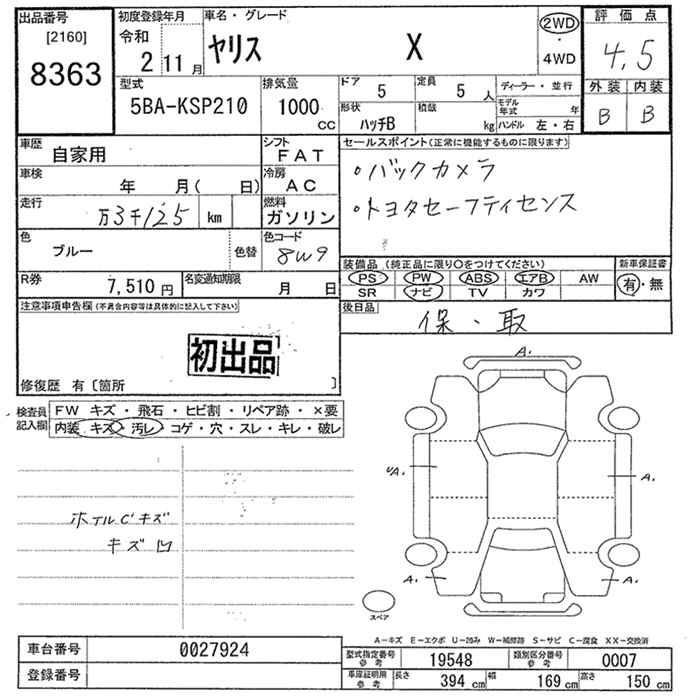 出品番号 初度登録年月 車名・グレード 評価点
[2160] 令和 ヤリス X 2WD ・ 4WD 4.5
8363 2年 11月
型式 排気量 ドア 5 定員 5人 ディーラー・並行 外装 内装
5BA-KSP210 1000cc 形状 ハッチB 積載 kg モデル年式 年 B B
ハンドル 左・右
車歴 自家用 シフト FAT セールスポイント(正常に機能するものに限ります)
車検 年 月( 日) 冷房 AC ・バックカメラ
走行 万3千125 km 燃料 ガソリン ・トヨタセーフティセンス
色 ブルー 色替 色コード 8W9
装備品(純正品に限り○をつけてください) 新車保証書
R券 7,510円 名変通知期限 月 日 PS PW ABS エアB AW 有・無
SR ナビ TV カワ
注意事項申告欄(不具合内容等は具体的に記入して下さい) 後日品 保・取
初出品
修復歴 有〔箇所 〕
検査員記入欄 FW キズ・飛石・ヒビ割・リペア跡・×要
内装 キズ・汚レ・コゲ・穴・スレ・キレ・破レ
A.
A. A.
ホイルCキズ
キズ凹
A. A.
スペア
A-キズ E-エクボ U-凹み W-補修跡 S-サビ C-腐食 XX-交換済
車台番号 0027924 型式指定番号 参考 19548 類別区分番号 参考 0007
登録番号 車庫証明用 参考 長さ 394 cm 幅 169 cm 高さ 150 cm